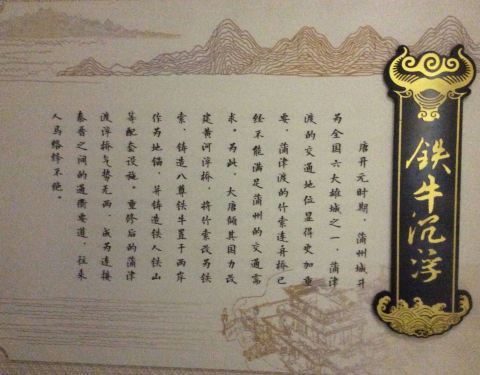 铁牛沉浮
唐开元时期，蒲州城升
为全国六大雄城之一，蒲津
渡的交通地位显得更加重
要，蒲津渡的竹索连舟桥已
经不能满足蒲州的交通需
求。为此，大唐倾其国力改
建黄河浮桥，将竹索改为铁
索，铸造八尊铁牛置于两岸
作为地锚，并铸造铁人铁山
等配套设施。重修后的蒲津
渡浮桥气势无两，成为连接
秦晋之间的通衢要道，往来
人马络绎不绝。